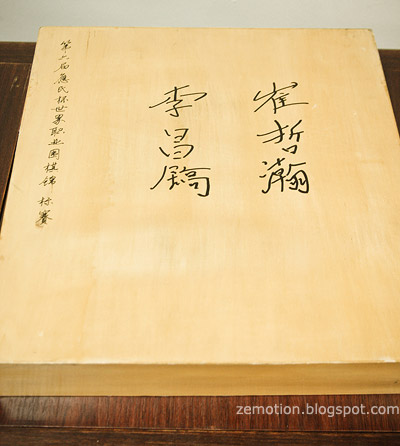 崔哲瀚
李昌镐
第六届應氏杯世界职业围棋锦标賽
zemotion.blogspot.com